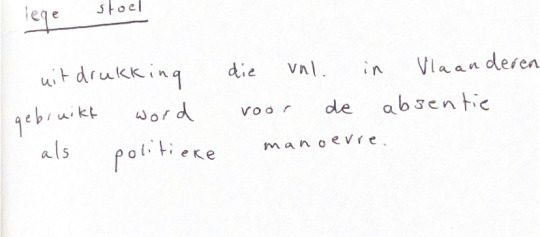 lege stoel
uitdrukking die vnl. in Vlaanderen
gebruikt word voor de absentie
als politieke manoevre.